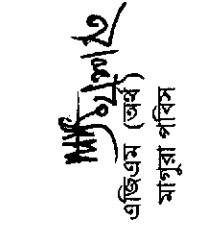 এজিএম (অর্থ)
মাগুরা পবিস